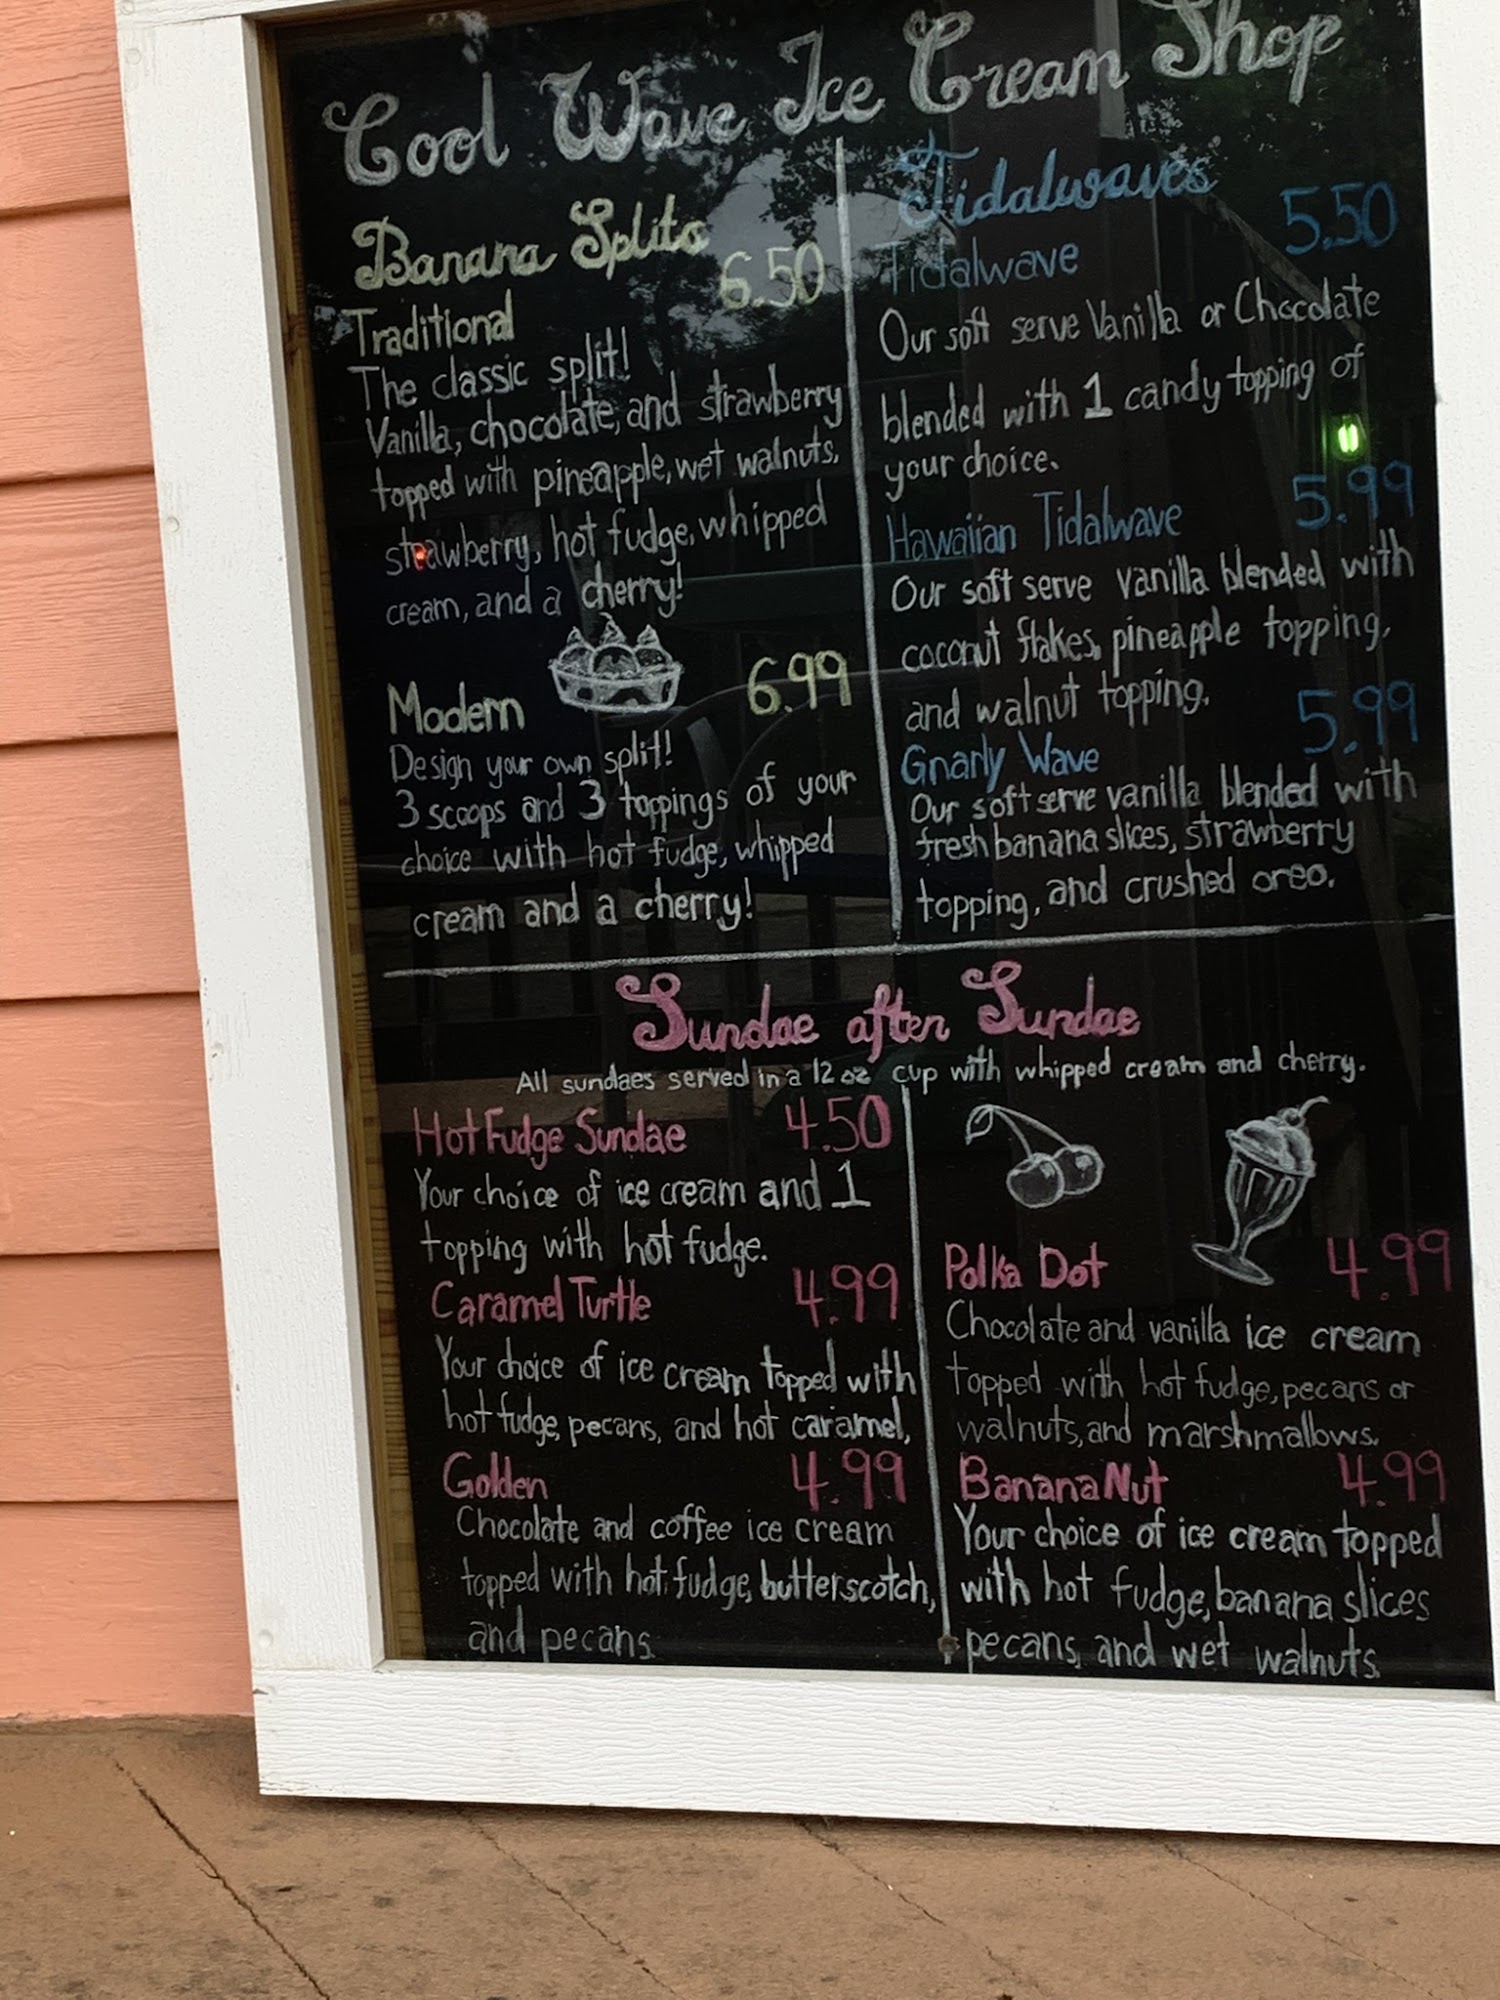 Cool Wave Ice Cream Shop
Banana Splits
6.50
Traditional
The classic split!
Vanilla, chocolate, and strawberry
topped with pineapple, wet walnuts,
strawberry, hot fudge, whipped
cream, and a cherry!
Modern
6.99
Design your own split!
3 scoops and 3 toppings of your
choice with hot fudge, whipped
cream and a cherry!
Tidalwaves
Tidalwave
5.50
Our soft serve Vanilla or Chocolate
blended with 1 candy topping of
your choice.
Hawaiian Tidalwave
5.99
Our soft serve vanilla blended with
coconut flakes, pineapple topping,
and walnut topping.
Gnarly Wave
5.99
Our soft serve vanilla blended with
fresh banana slices, strawberry
topping, and crushed oreo.
Sundae after Sundae
All sundaes served in a 12 oz cup with whipped cream and cherry.
Hot Fudge Sundae
4.50
Your choice of ice cream and 1
topping with hot fudge.
Caramel Turtle
4.99
Your choice of ice cream topped with
hot fudge, pecans, and hot caramel,
Golden
4.99
Chocolate and coffee ice cream
topped with hot fudge, butterscotch,
and pecans.
Polka Dot
4.99
Chocolate and vanilla ice cream
topped with hot fudge, pecans or
walnuts, and marshmallows.
Banana Nut
4.99
Your choice of ice cream topped
with hot fudge, banana slices
pecans, and wet walnuts.